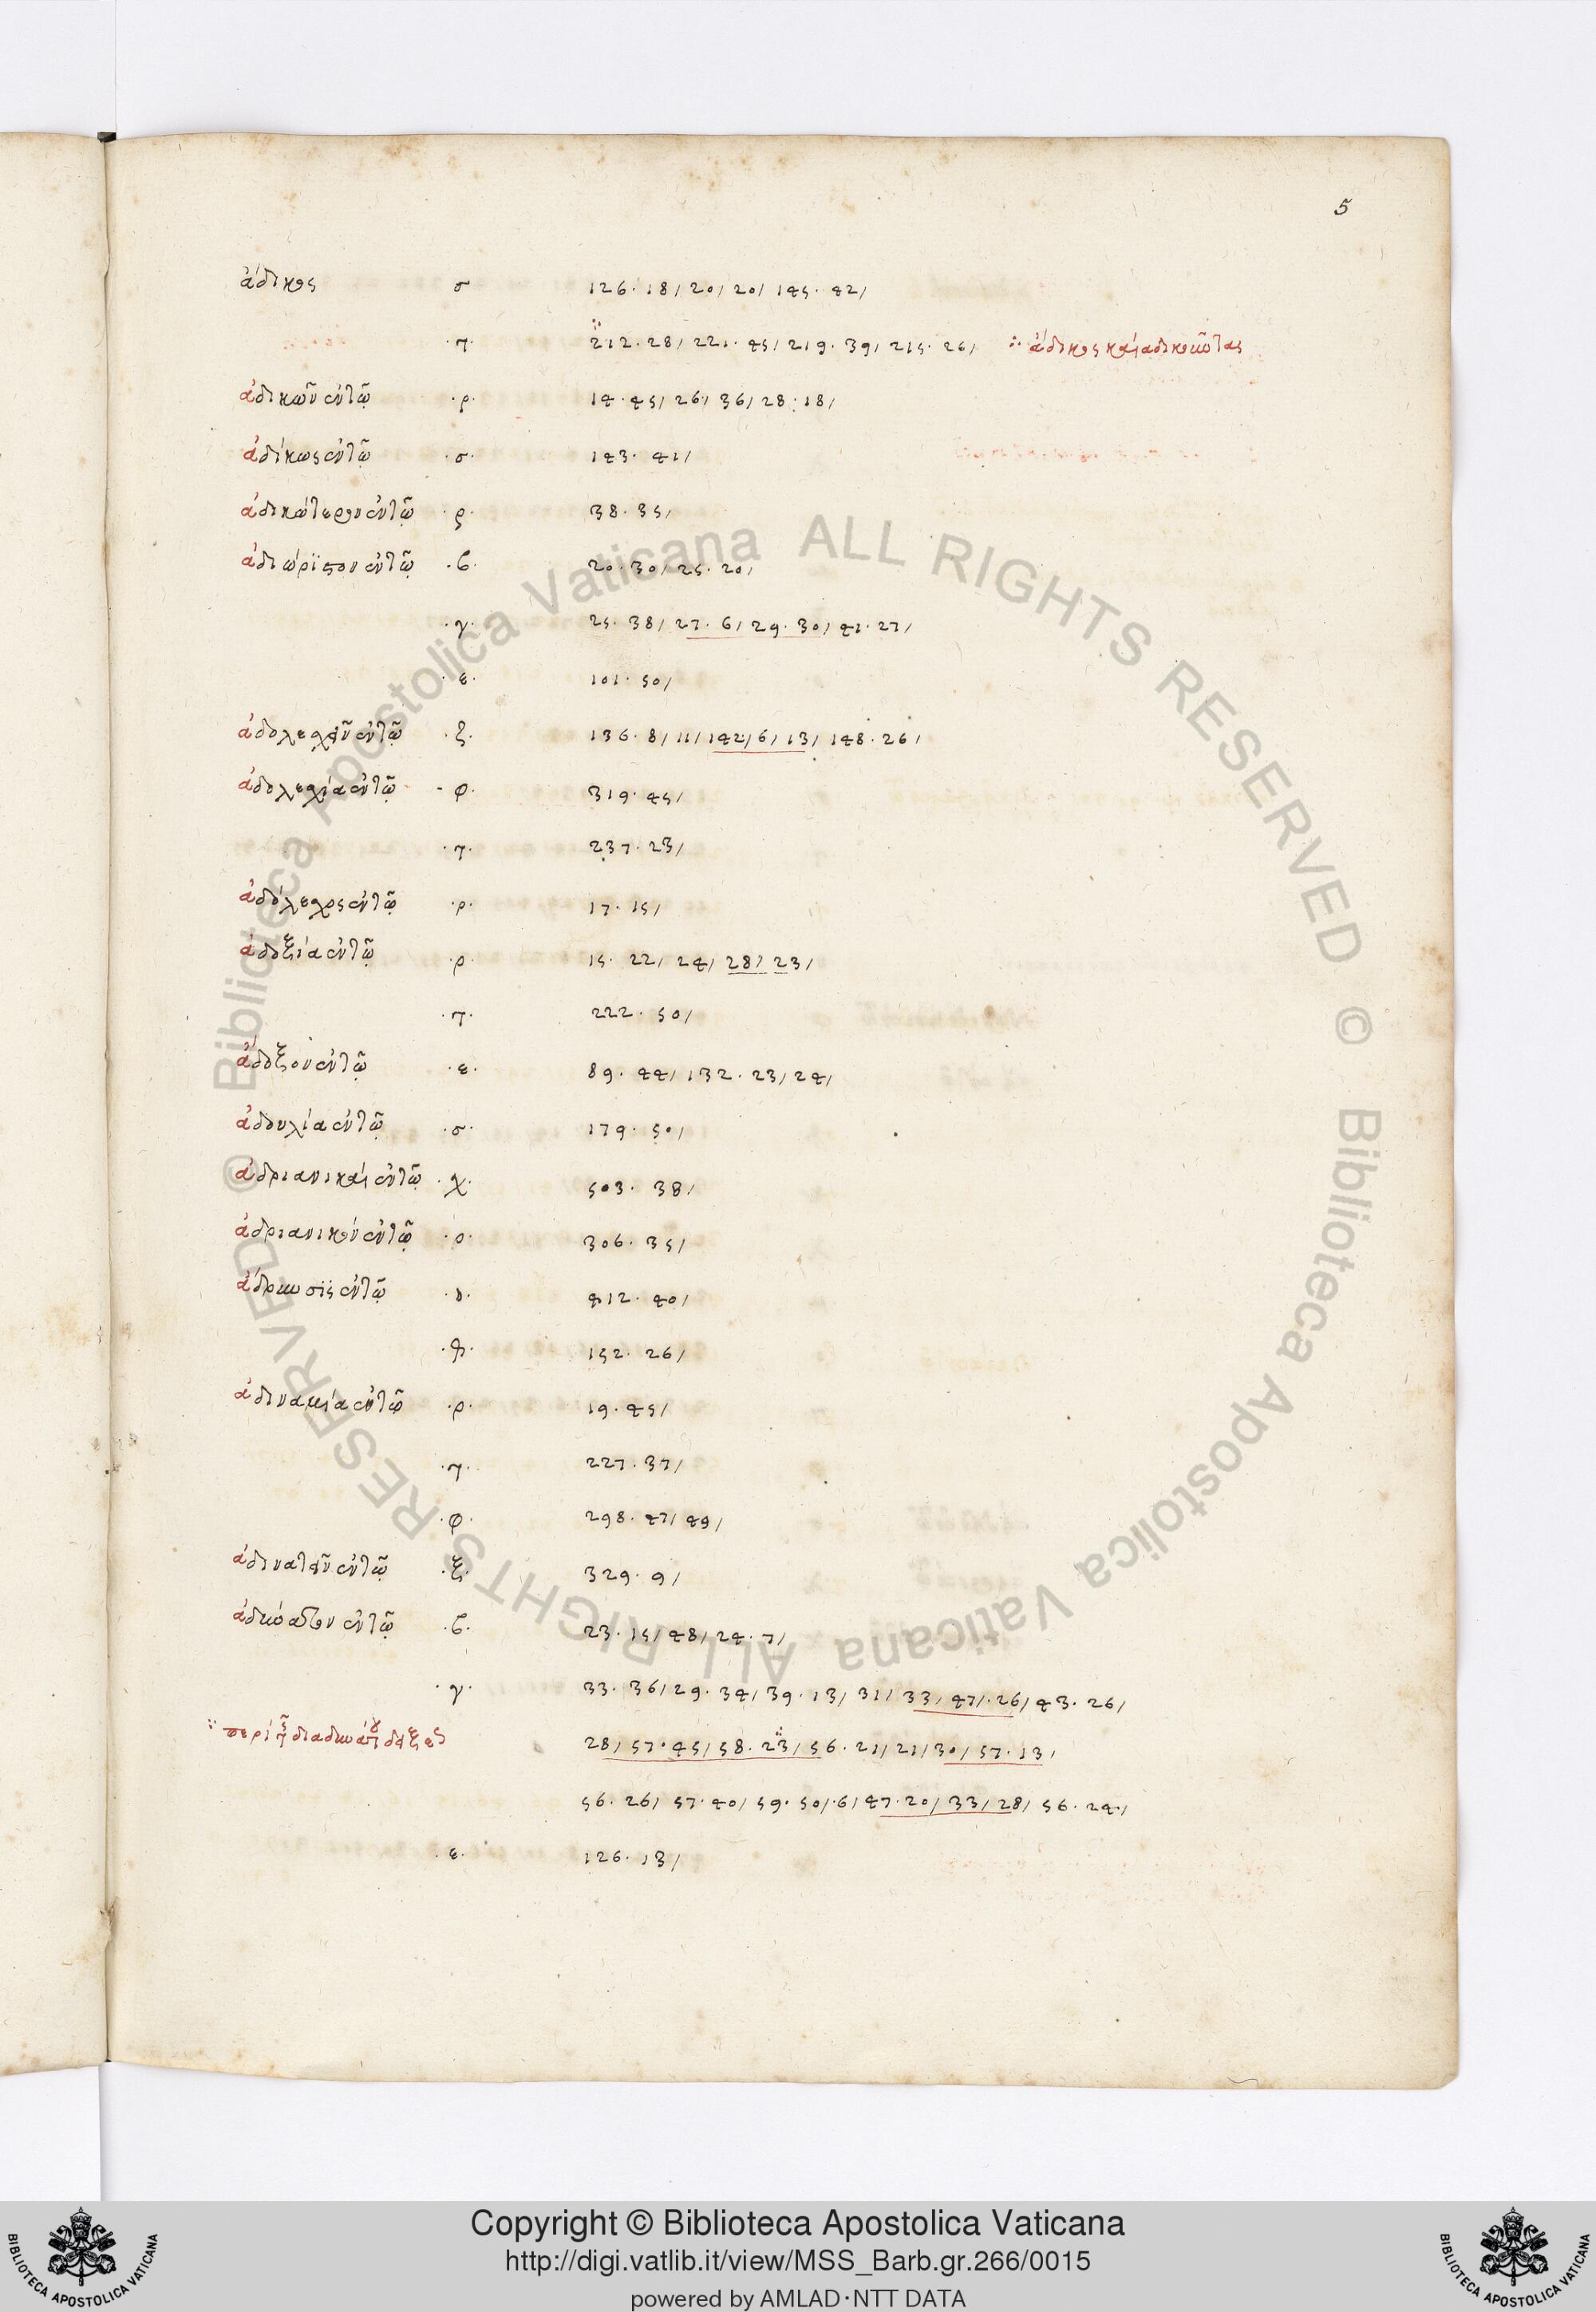 5
ἄδικος σ 126. 18/ 20/ 20/ 145. 42/
.τ. 212. 28/ 221. 45/ 219. 39/ 215. 26/ ἄδικος καὶ ἀδικοῦντας
ἀδικῶν ἐν τῷ .ρ. 14. 45/ 26/ 36/ 28. 18/
ἀδίκως ἐν τῷ .σ. 143. 41/
ἀδικώτερον ἐν τῷ .ρ. 38. 35/
ἀδιόριστον ἐν τῷ .β. 20. 30/ 25. 20/
.γ. 25. 38/ 27. 6/ 29. 30/ 41. 27/
.ε. 101. 50/
ἀδολεσχεῖν ἐν τῷ .ξ. 136. 8/ 11/ 142/ 6/ 13/ 148. 26/
ἀδολεσχία ἐν τῷ .φ. 319. 45/
.τ. 237. 23/
ἀδόλεσχος ἐν τῷ .ρ. 17. 15/
ἀδοξία ἐν τῷ .ρ. 15. 22/ 24/ 28/ 23/
.τ. 222. 50/
ἄδοξον ἐν τῷ .ε. 89. 44/ 132. 23/ 24/
ἀδουλία ἐν τῷ .σ. 179. 50/
ἀδριανικαὶ ἐν τῷ .χ. 503. 38/
ἀδριανικὸν ἐν τῷ .ο. 306. 35/
ἅδρωσις ἐν τῷ .δ. 412. 40/
152. 26/
ἀδυναμία ἐν τῷ .ρ. 19. 45/
.τ. 227. 37/
.φ. 298. 47/ 49/
ἀδυνατεῖν ἐν τῷ .ξ. 329. 9/
ἀδύνατον ἐν τῷ .β. 23. 15/ 48/ 24. 7/
.γ. 33. 36/ 29. 34/ 39. 13/ 31/ 33/ 47/. 26/ 43. 26/
περὶ τῆς δείξεως 28/ 57. 45/ 58. 23/ 56. 21/ 21/ 30/ 57. 13/
56. 26/ 57. 40/ 59. 50/. 6/ 47. 20/ 33/ 28/ 56. 24/
.ε. 126. 13/
© Biblioteca Apostolica Vaticana ALL RIGHTS RESERVED © Biblioteca Apostolica Vaticana ALL RIGHTS RESERVED
Copyright © Biblioteca Apostolica Vaticana
http://digi.vatlib.it/view/MSS_Barb.gr.266/0015
powered by AMLAD·NTT DATA
BIBLIOTECA APOSTOLICA VATICANA
BIBLIOTECA APOSTOLICA VATICANA